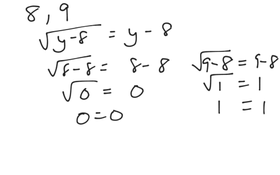 8, 9
√(y-8) = y-8
√(8-8) = 8-8
√0 = 0
0=0
√(9-8) = 9-8
√1 = 1
1 = 1